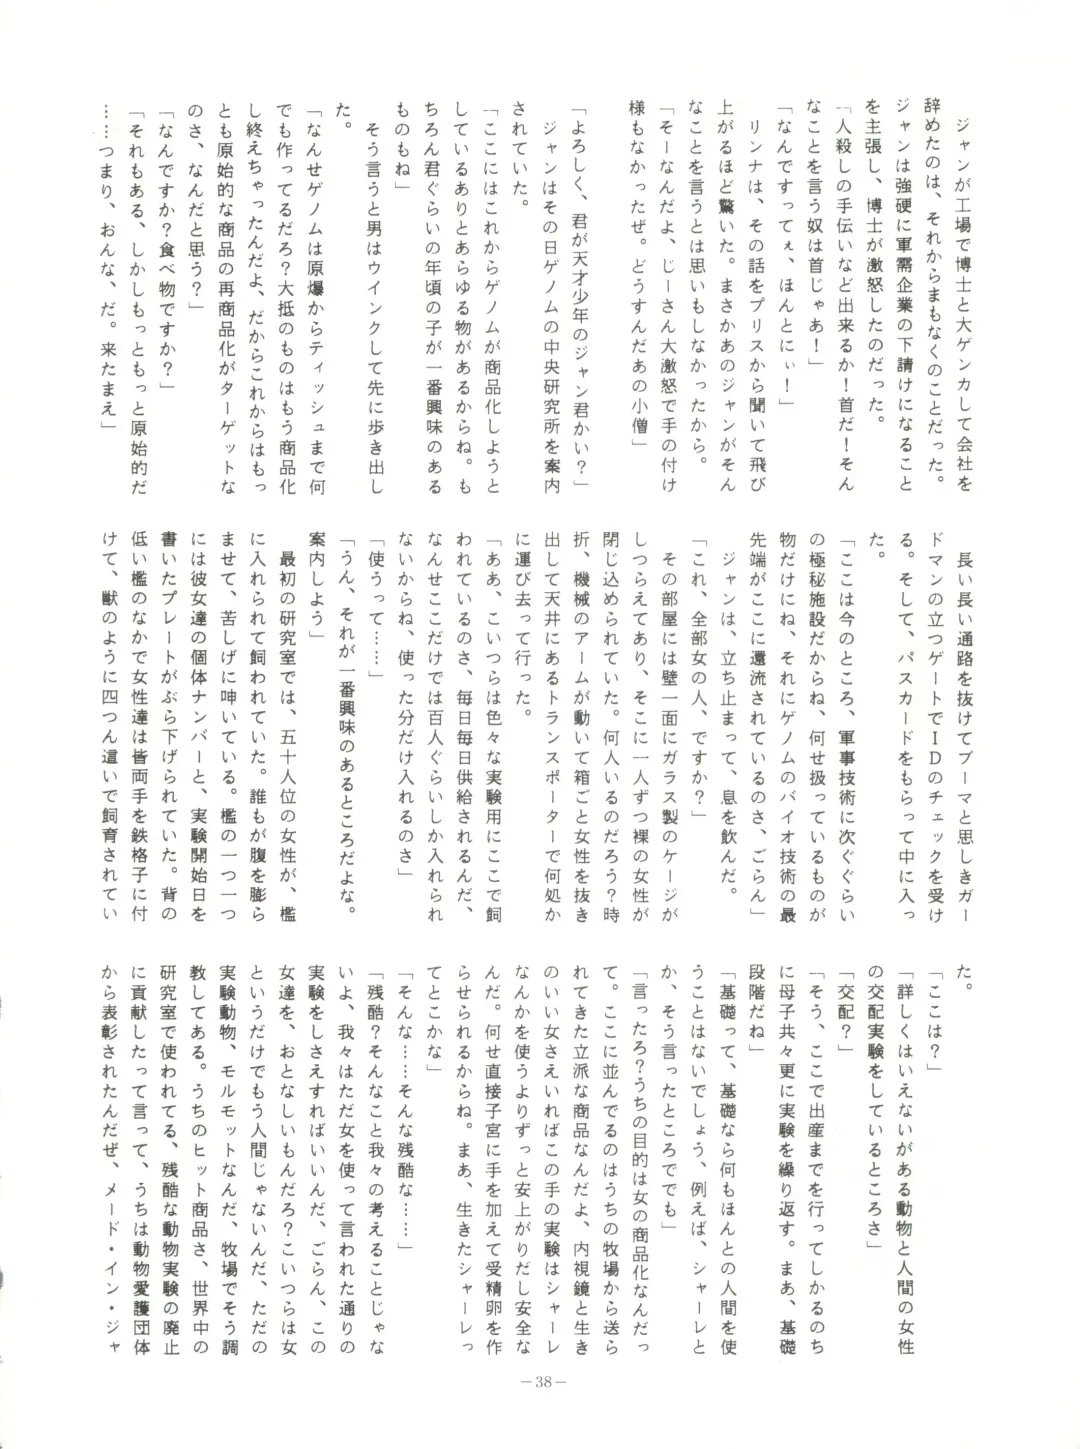 ジャンが工場で博士と大ゲンカして会社を
辞めたのは、それからまもなくのことだった。
ジャンは強硬に軍需企業の下請けになること
を主張し、博士が激怒したのだった。
「人殺しの手伝いなど出来るか！首だ！そん
なことを言う奴は首じゃあ！」
「なんですってぇ、ほんとにぃ！」
　リンナは、その話をプリスから聞いて飛び
上がるほど驚いた。まさかあのジャンがそん
なことを言うとは思いもしなかったから。
「そーなんだよ、じーさん大激怒で手の付け
様もなかったぜ。どうすんだあの小僧」
「よろしく、君が天才少年のジャン君かい？」
　ジャンはその日ゲノムの中央研究所を案内
されていた。
「ここにはこれからゲノムが商品化しようと
しているありとあらゆる物があるからね。も
ちろん君ぐらいの年頃の子が一番興味のある
ものもね」
　そう言うと男はウインクして先に歩き出し
た。
「なんせゲノムは原爆からティッシュまで何
でも作ってるだろ？大抵のものはもう商品化
し終えちゃったんだよ、だからこれからはもっ
とも原始的な商品の再商品化がターゲットな
のさ、なんだと思う？」
「なんですか？食べ物ですか？」
「それもある、しかしもっともっと原始的だ
……つまり、おんな、だ。来たまえ」
　長い長い通路を抜けてブーマと思しきガー
ドマンの立つゲートでＩＤのチェックを受け
る。そして、パスカードをもらって中に入っ
た。
「ここは今のところ、軍事技術に次ぐぐらい
の極秘施設だからね、何せ扱っているものが
物だけにね、それにゲノムのバイオ技術の最
先端がここに還流されているのさ、ごらん」
　ジャンは、立ち止まって、息を飲んだ。
「これ、全部女の人、ですか？」
　その部屋には壁一面にガラス製のケージが
しつらえてあり、そこに一人ずつ裸の女性が
閉じ込められていた。何人いるのだろう？時
折、機械のアームが動いて箱ごと女性を抜き
出して天井にあるトランスポーターで何処か
に運び去って行った。
「ああ、こいつらは色々な実験用にここで飼
われているのさ、毎日毎日供給されるんだ、
なんせここだけでは百人ぐらいしか入れられ
ないからね、使った分だけ入れるのさ」
「使うって……」
「うん、それが一番興味のあるところだよな。
案内しよう」
　最初の研究室では、五十人位の女性が、檻
に入れられて飼われていた。誰もが腹を膨ら
ませて、苦しげに呻いている。檻の一つ一つ
には彼女達の個体ナンバーと、実験開始日を
書いたプレートがぶら下げられていた。背の
低い檻のなかで女性達は皆両手を鉄格子に付
けて、獣のように四つん這いで飼育されてい
た。
「ここは？」
「詳しくはいえないがある動物と人間の女性
の交配実験をしているところさ」
「交配？」
「そう、ここで出産までを行ってしかるのち
に母子共々更に実験を繰り返す。まあ、基礎
段階だね」
「基礎って、基礎なら何もほんとの人間を使
うことはないでしょう、例えば、シャーレと
か、そう言ったところででも」
「言ったろ？うちの目的は女の商品化なんだっ
て。ここに並んでるのはうちの牧場から送ら
れてきた立派な商品なんだよ、内視鏡と生き
のいい女さえいればこの手の実験はシャーレ
なんかを使うよりずっと安上がりだし安全な
んだ。何せ直接子宮に手を加えて受精卵を作
らせられるからね。まあ、生きたシャーレっ
てとこかな」
「そんな……そんな残酷な……」
「残酷？そんなこと我々の考えることじゃな
いよ、我々はただ女を使って言われた通りの
実験をしさえすればいいんだ、ごらん、この
女達を、おとなしいもんだろ？こいつらは女
というだけでもう人間じゃないんだ、ただの
実験動物、モルモットなんだ、牧場でそう調
教してある。うちのヒット商品さ、世界中の
研究室で使われてる、残酷な動物実験の廃止
に貢献したって言って、うちは動物愛護団体
から表彰されたんだぜ、メード・イン・ジャ
－38－